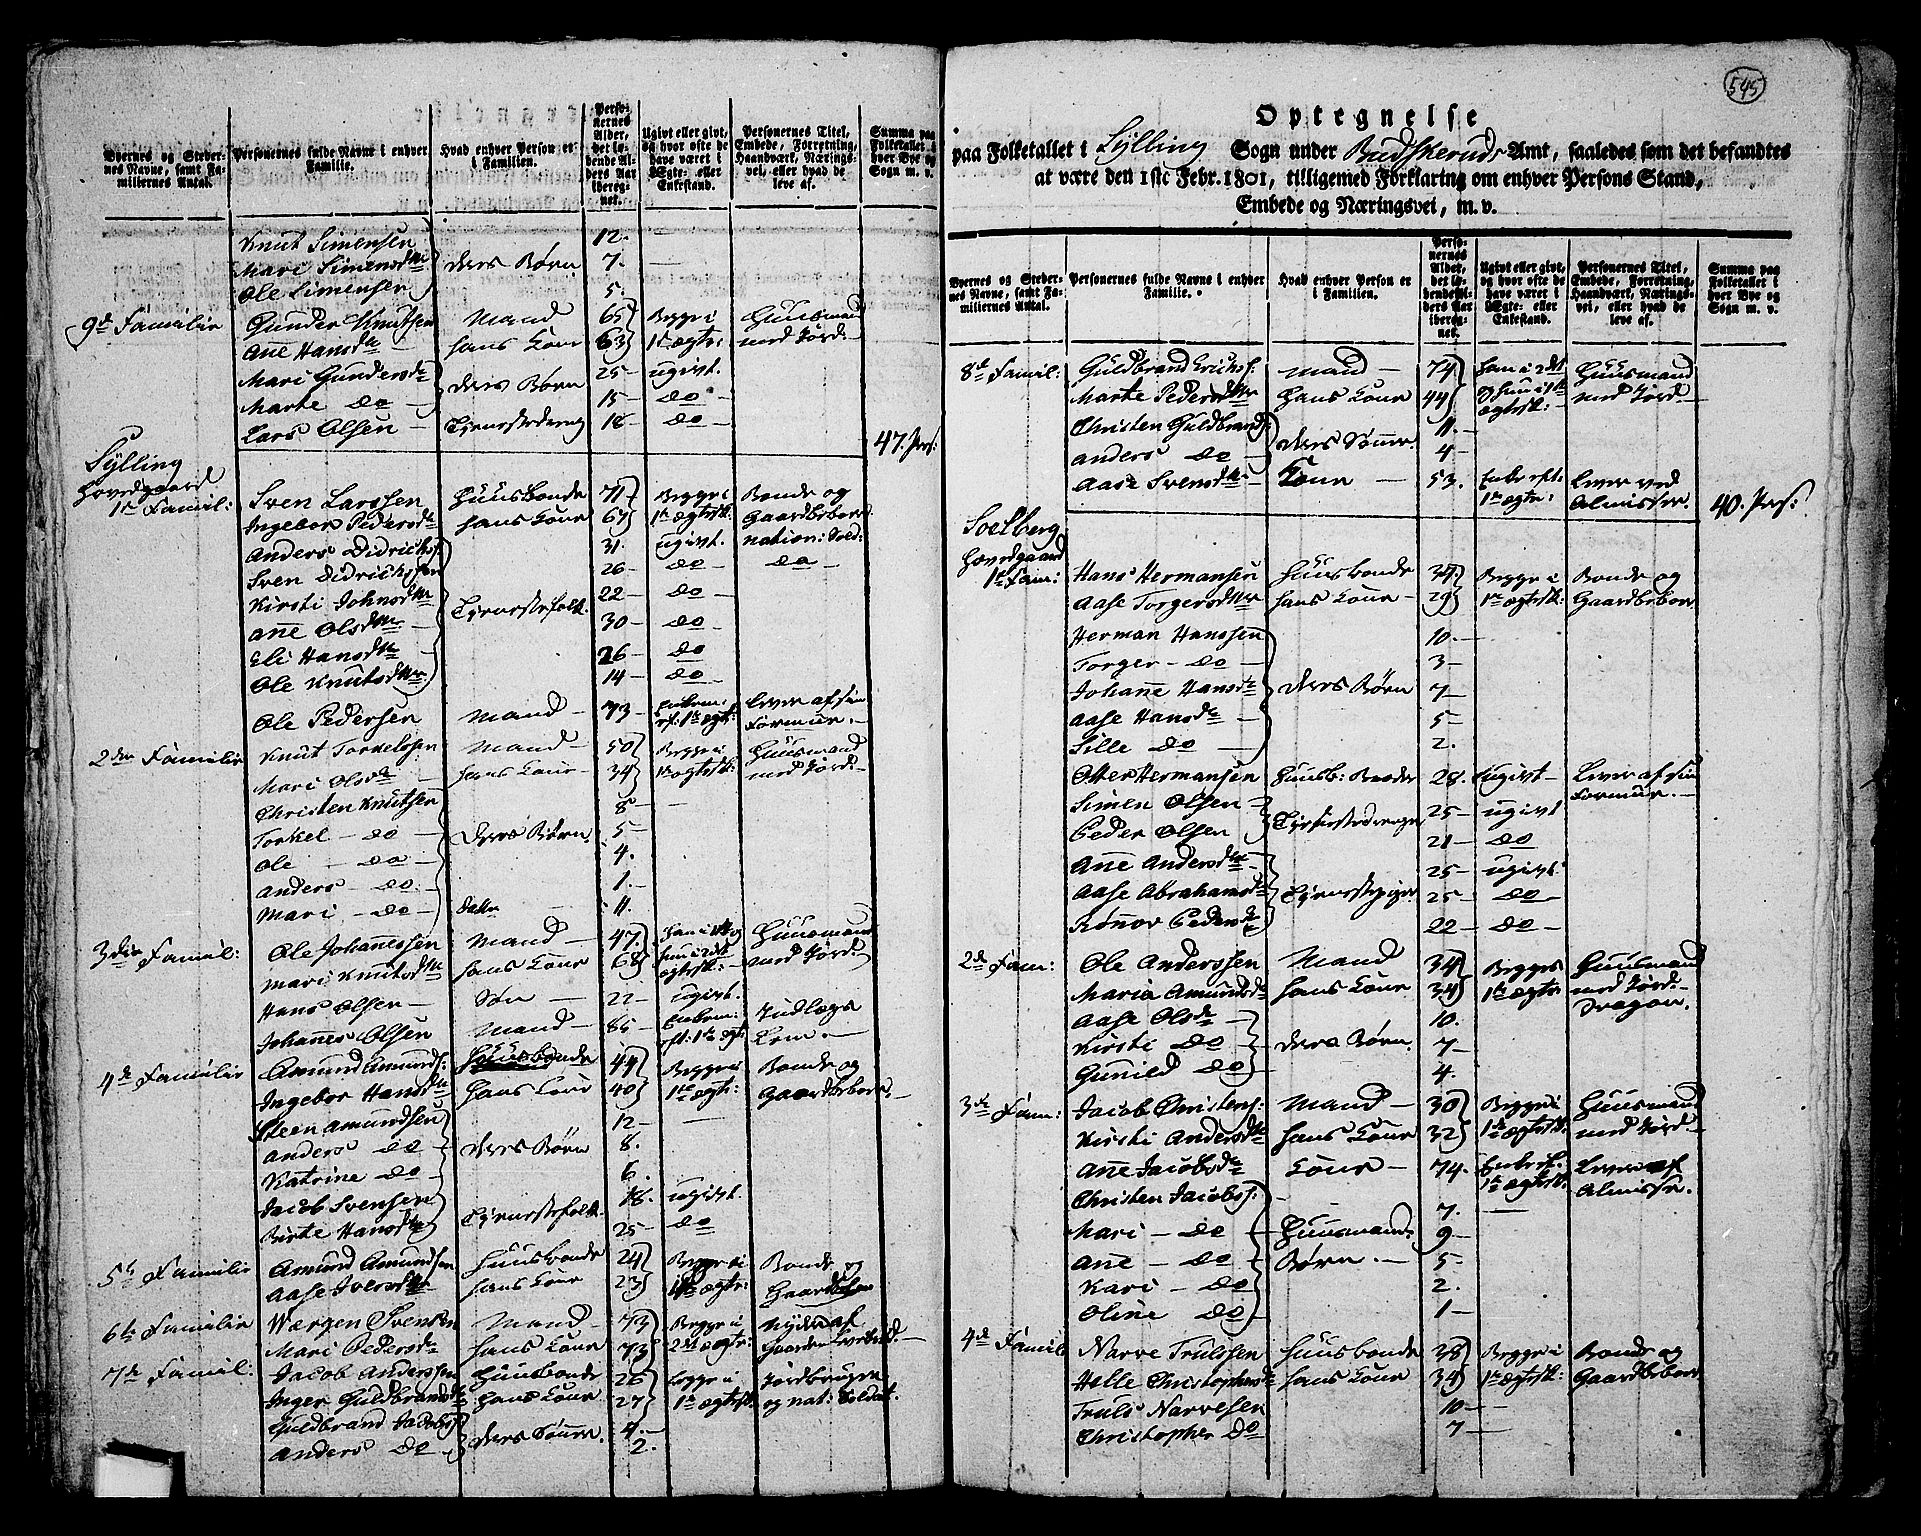 545
Byernes og Stedernes Navne, samt Familiernes Antal.
Personernes fulde Navne i enhver Familie.
Hvad enhver Person er i Familien.
Personernes Alder, det løbende Alders Aar iberegnet.
Ugivt eller givt, og hvor ofte de have været i Ægte- eller Enkestand.
Personernes Titel, Embede, Forretning, Haandværk, Næringsvei, eller hvad de leve af.
Summa paa Folketallet i hver Bye og Sogn m. v.
Knut Simensen 12. —
Mari Simensdtr ders Børn 7. —
Ole Simensen 5
9de Familie Gunder Knutsen Mand 65 Begge i Huusmand
Ane Hansdtr — hans Kone 63 1te ægte: med Jord. —
Mari Gundersdtr ders Børn 25 — ugivt.
Marte do — 15 — do —
Lars Olsen — Tienestedreng 18 — do — 47. Pers:
Sylling
Hovedgaard
1te Famil: Sven Larssen Huusbonde 71 Begge i Bonde og
Ingebor Pedersdtr hans Kone 67 1te ægtesk: Gaardbeboer
Anders Didrichs: 31. ugivt. nation: Sold:
Sven Didrichssen 26 — do — do —
Kirsti Johnsdtr Tienestefolk. 22 — do —
Ane Olsdtr — 30 — do
Eli Hansdtr — 26 — do
Ole Knutsdtr 14 — do —
Ole Pedersen Mand — 73 — Enkem: Lever af sin
ef: 1te ægt: Formue. —
2den Familie Knut Torkelssen Mand — 50 Begge i Huusmand
Mari Olsdtr hans Kone 34 1te ægtesk: med Jord. —
Christen Knutsen 8 — —
Torkel — do — ders Børn 5 —
Ole — do — 4.
Anders — do — 1. —
Mari — do — 11.
3die Famil: Ole Johanessen Mand — 47. Huusmand
Mari Knutsdtr hans Kone 68 hun i 2det med Jord.
ægtesk: —
Hans Olsen — Søn — 22 — ugivt.
Johannes Olsen Mand — 85 — Enkem: Indlægs
eft: 1te ægt: Lem. —
4de Familie Amund Amunds: Huusbonde 44 Begge i Bonde og
Ingebor Hansdtr hans Kone 40 1te ægt: Gaardbeboer. —
Steen Amundsen 12 — —
Anders do ders Børn 8.
Katrine do 6.
Jacob Svensen Tienestefolk. 18. ugivt.
Birte Hansdtr 25 — do
5te Familie Amund Amundsen Huusbonde 24 Begge i Bonde og
Aase Iversdtr hans Kone 23 1te ægte:
6te Familie Svensen Mand — 73 Begge i Nyder af
Mari Pedersdtr hans Kone 73 2det ægte: Gaarden —
7de Famil: Jacob Anderssen Huusbonde 26 Begge i Jordbruger
Inger Guldbrandsdtr hans Kone 27 1te ægtesk: og nat: Soldat.
Guldbrand Jacobss: ders Sønner. 4. —
Anders do 2.
Optegnelse
paa Folketallet i Sylling Sogn under Budskeruds Amt, saaledes som det befandtes
at være den 1ste Febr. 1801, tilligemed Forklaring om enhver Persons Stand,
Embede og Næringsvei, m. v.
Byernes og Stedernes Navne, samt Familiernes Antal.
Personernes fulde Navne i enhver Familie.
Hvad enhver Person er i Familien.
Personernes Alder, det løbende Alders Aar iberegnet.
Ugivt eller givt, og hvor ofte de have været i Ægte- eller Enkestand.
Personernes Titel, Embede, Forretning, Haandværk, Næringsvei, eller hvad de leve af.
Summa paa Folketallet i hver Bye og Sogn m. v.
8de Famil: Guldbrand Erichs: Mand — 74 Han i 2det Huusmand
Marte Pedersdtr hans Kone 44 hun i 1te med Jord —
ægtesk: —
Christen Guldbrands: ders Sønner 11. —
Anders do — 4 —
Aase Svensdtr — Kone — 53. Enke eft: Lever ved
1te ægte: Almisser. 40. Pers:
Soelberg
Hovedgaard
1te Fam: Hans Hermansen Huusbonde 34 Begge i Bonde og
Aase Torgersdtr hans Kone 29 1te ægtesk: Gaardbeboer
Herman Hanssen 10. —
Torger — do — 3 —
Johane Hansdtr ders Børn 7 —
Aase Hansdtr — 5 —
Sille do — 2.
Otter Hermansen Huusb: Broder 28. ugivt — Lever af sin
Formue. —
Simen Olsen Tienestedrenge 25 — ugivt
Peder Olsen 21 — do
Ane Andersdtr 25 — ugivt
Aase Abrahamsdtr Tienestepiger 25 — do —
Rønnov Pedersdtr 22 — do —
2de Fam: Ole Anderssen Mand 34 Begge i Huusmand
Maria Amundsdtr hans Kone 34 1te ægte: med Jord. —
Dragon —
Aase Olsdtr — 10.
Kirsti do ders Børn. 7 —
Gunild do 4.
3die Fam: Jacob Christens: Mand — 30 Begge i Huusmand
Kirsti Andersdtr hans Kone 32 1te ægtesk: med Jord. —
Ane Jacobsdtr Kone — 74. Enke ef: Lever af
1te ægtesk: Almisse.
Christen Jacobss: 7. —
Mari — do Huusmands 9 —
Ane — do — Børn. 5 —
Kari — do 2.
Oline do 1 —
4de Famil Narve Trulssen Huusbonde 38 Begge i Bonde og
Helle Christophersdtr hans Kone 34 1te ægtesk: Gaardbeboer
Truls Narvesen 10 —
Christopher do 7 —